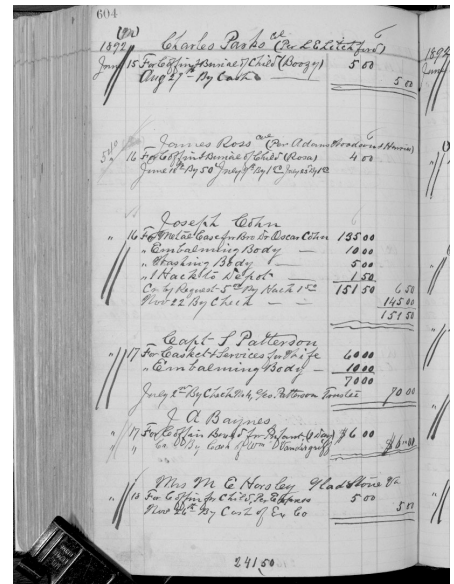 604
1892 Charles Parks col (Per L E Litchford) 6
June 15 For Coffin & Burial of Child (Boozy) 5 00
Aug 27th By Cash — 5 00
James Ross col (Per Adams
" 16 For Coffin & Burial of Child (Rosa) 4 00
June 18th By 50 July 9th By 1 00 July 23rd By 1 00
Joseph Cohn
" 16 For Metal Case for Bro Dr Oscar Cohn 135 00
" Embalming Body — 10 00
" Washing Body — 5 00
" 1 Hack to Depot — 1 50
Cr by Request 5 00 By Hack 1 50 151 50 6 50
Nov 22 By Check — 145 00
151 50
Capt S Patterson
" 17 For Casket & Services for Wife 60 00
" Embalming Body — 10 00
70 00
July 2nd By Check Geo Patterson Trustee 70 00
J A Baynes
" 17 For Coffin Box for Infant (1 Day) $6 00
" Cr By of Wm Vandegriff $6 00
Mrs M E Horsley Gladstone Va
" 18 For Coffin for Child, Per Express 5 00
Nov 26th By Cash of Ex Co 5 00
241 50
1892
June